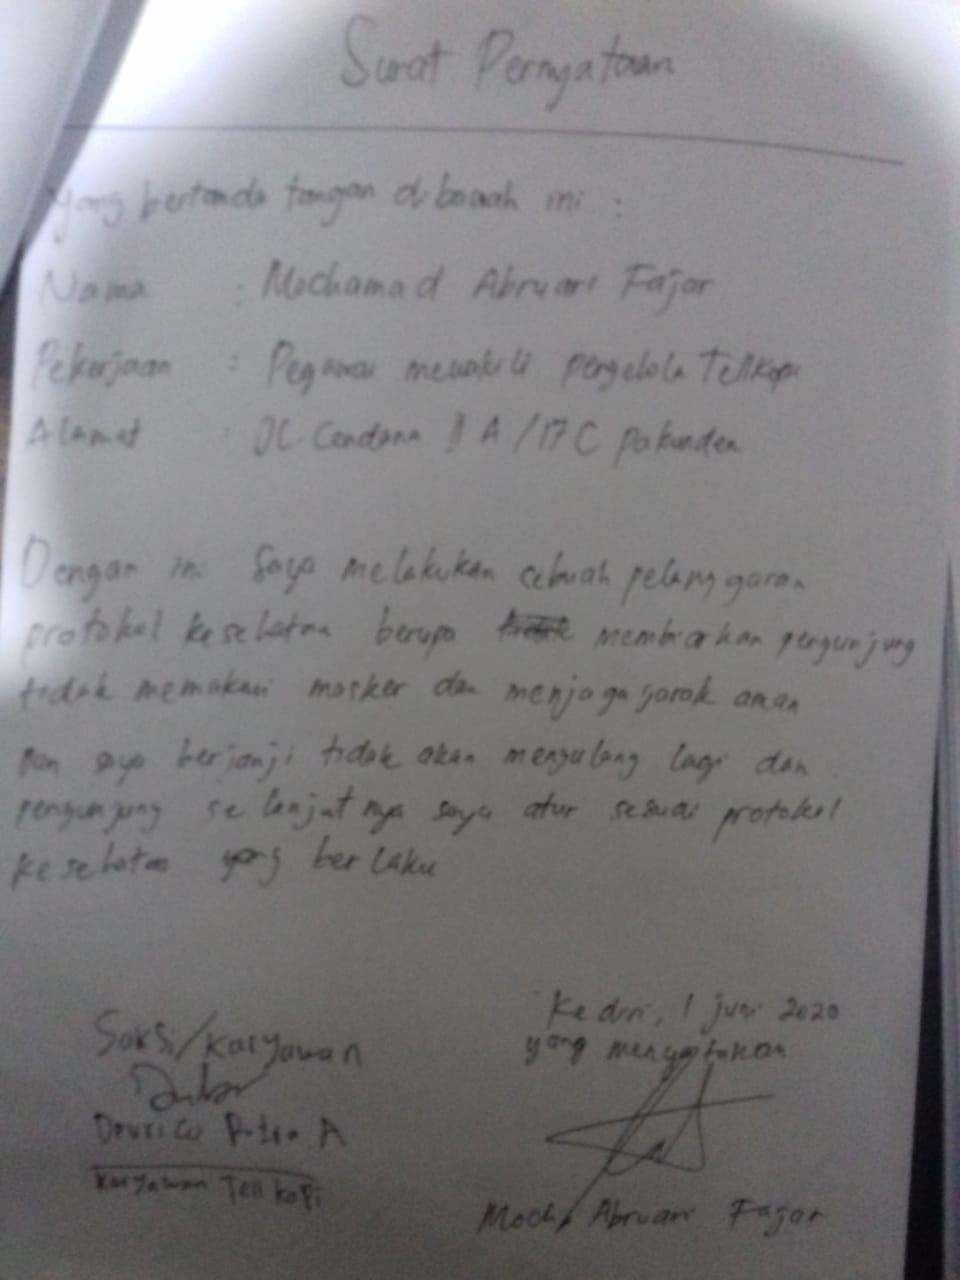 Surat Pernyataan
Yang bertanda tangan dibawah ini :
Nama : Mochamad Abruari Fajar
Pekerjaan : Pegawai mewakili pengelola Tellkopi
Alamat : JL. Cendana II A /17 C Pakunden
Dengan ini Saya melakukan sebuah pelanggaran
protokol kesehatan berupa membiarkan pengunjung
tidak memakai masker dan menjaga jarak aman
Dan saya berjanji tidak akan mengulang lagi dan
pengunjung selanjutnya saya atur sesuai protokol
kesehatan yang berlaku
Kediri, 1 juni 2020
yang menyatakan
Saksi/karyawan
Putra A
karyawan Tell kopi
Moch. Abruari Fajar